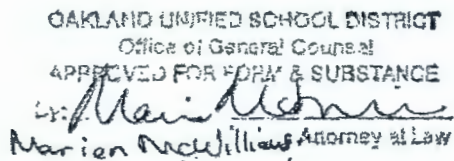 OAKLAND UNIFIED SCHOOL DISTRICT
Office of General Counsel
APPROVED FOR FORM & SUBSTANCE
By:
Marion McWilliams Attorney at Law